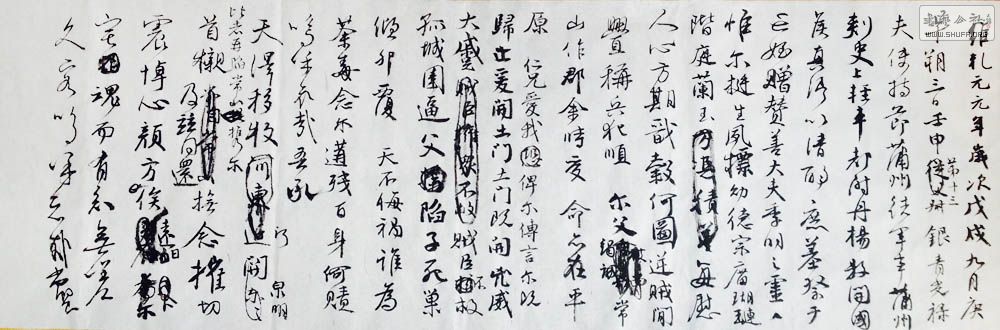 維乾元元年歲次戊戌九月庚
午朔三日壬申第十三從父銀青光祿
夫使持節蒲州諸軍事蒲州
刺史上輕車都尉丹楊縣開國
侯真卿以清酌庶羞祭于
亡姪贈贊善大夫季明之靈
惟爾挺生夙標幼德宗廟瑚璉
階庭蘭玉每慰
人心方期戩穀何圖逆賊閒
釁稱兵犯順爾父竭誠常
山作郡余時受命亦在平
原仁兄愛我俾爾傳言爾既
歸止爰開土門土門既開兇威
大蹙賊臣不救
孤城圍逼父陷子死巢
傾卵覆天不悔禍誰為
荼毒念爾遘殘百身何贖
嗚乎哀哉吾承
天澤移牧河東近泉明
比者再陷常山攜爾
首櫬及茲同還撫念摧切
震悼心顏方俟遠日
宅魂而有知無嗟
久客嗚呼哀哉尚饗
书法公社
WWW.SHUFF.ORG